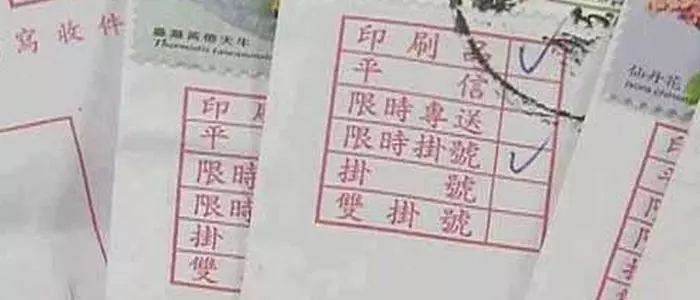 寫收件
臺灣黃條天牛
印刷
平
限時
限時
掛
雙
印刷品
平信
限時專送
限時掛號
掛號
雙掛號
仙丹花
Ixora chinensis
印
平
限
限
掛